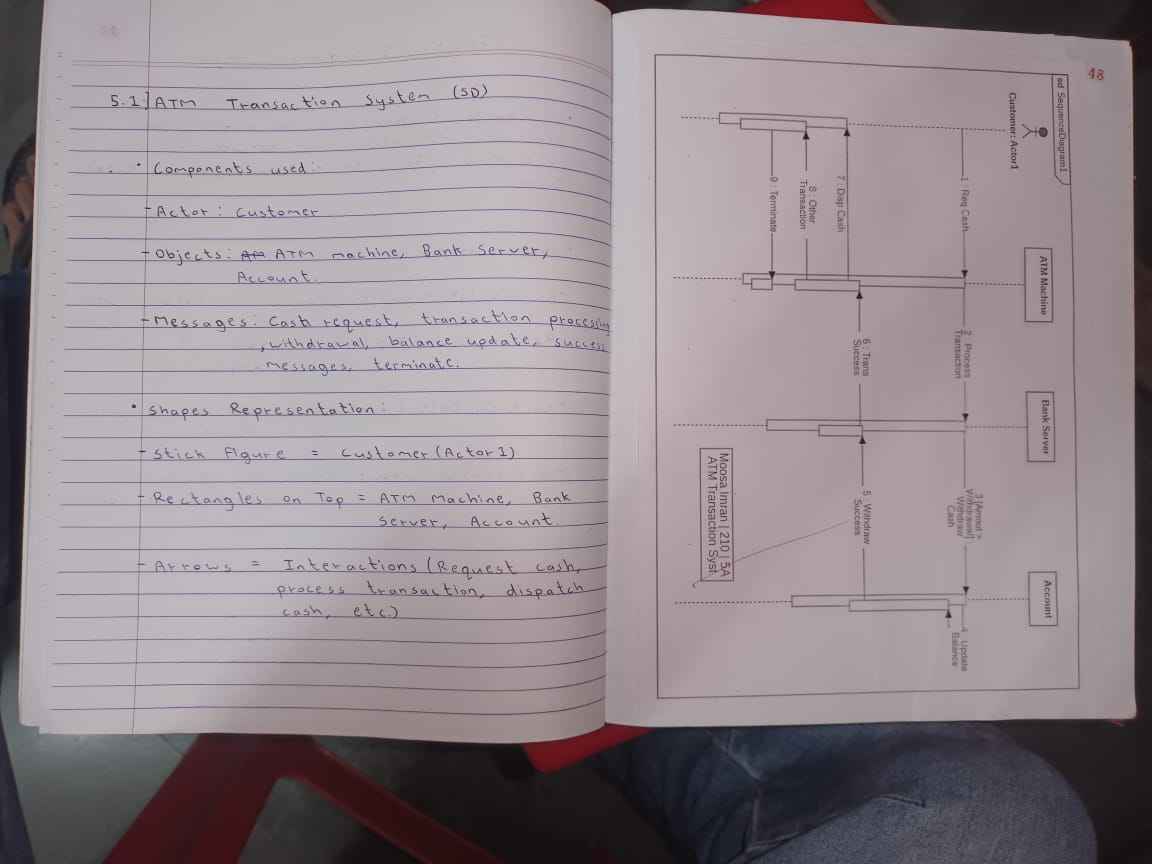 5.1] ATM Transaction System (SD)
• Components used:
- Actor: Customer
- Objects: ATM machine, Bank Server,
Account.
- Messages: Cash request, transaction processing
, withdrawal, balance update, success
messages, terminate.
• Shapes Representation:
- Stick Figure = Customer (Actor 1)
- Rectangles on Top = ATM Machine, Bank
Server, Account.
- Arrows = Interactions (Request cash,
process transaction, dispatch
cash, etc.)
48
sd SequenceDiagram1
Customer: Actor1
ATM Machine
Bank Server
Account
1 : Req Cash
2 : Process
Transaction
3 [Amout >
Withdrawal] :
Withdraw
Cash
4 : Update
Balance
5 : Withdraw
Success
6 : Trans
Success
7 : Disp Cash
8 : Other
Transaction
9 : Terminate
Moosa Imran | 210 | 5A
ATM Transaction Syst